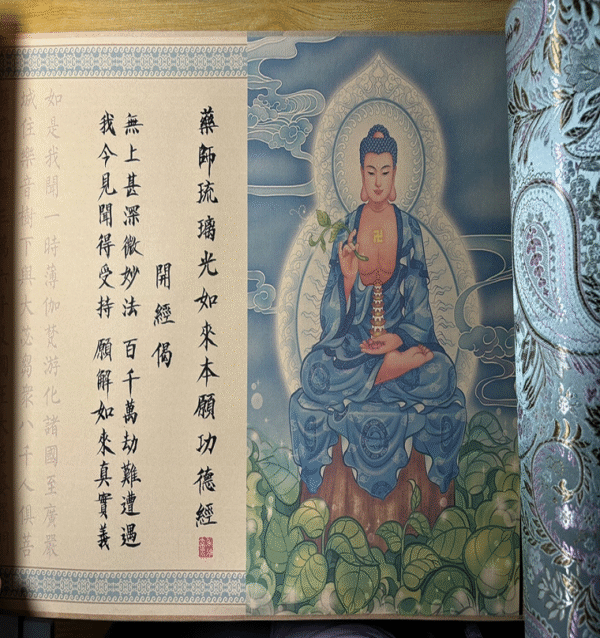 藥師琉璃光如來本願功德經
開經偈
無上甚深微妙法 百千萬劫難遭遇
我今見聞得受持 願解如來真實義
如是我聞一時薄伽梵游化諸國至廣嚴
城住樂音樹下與大苾芻衆八千人俱菩